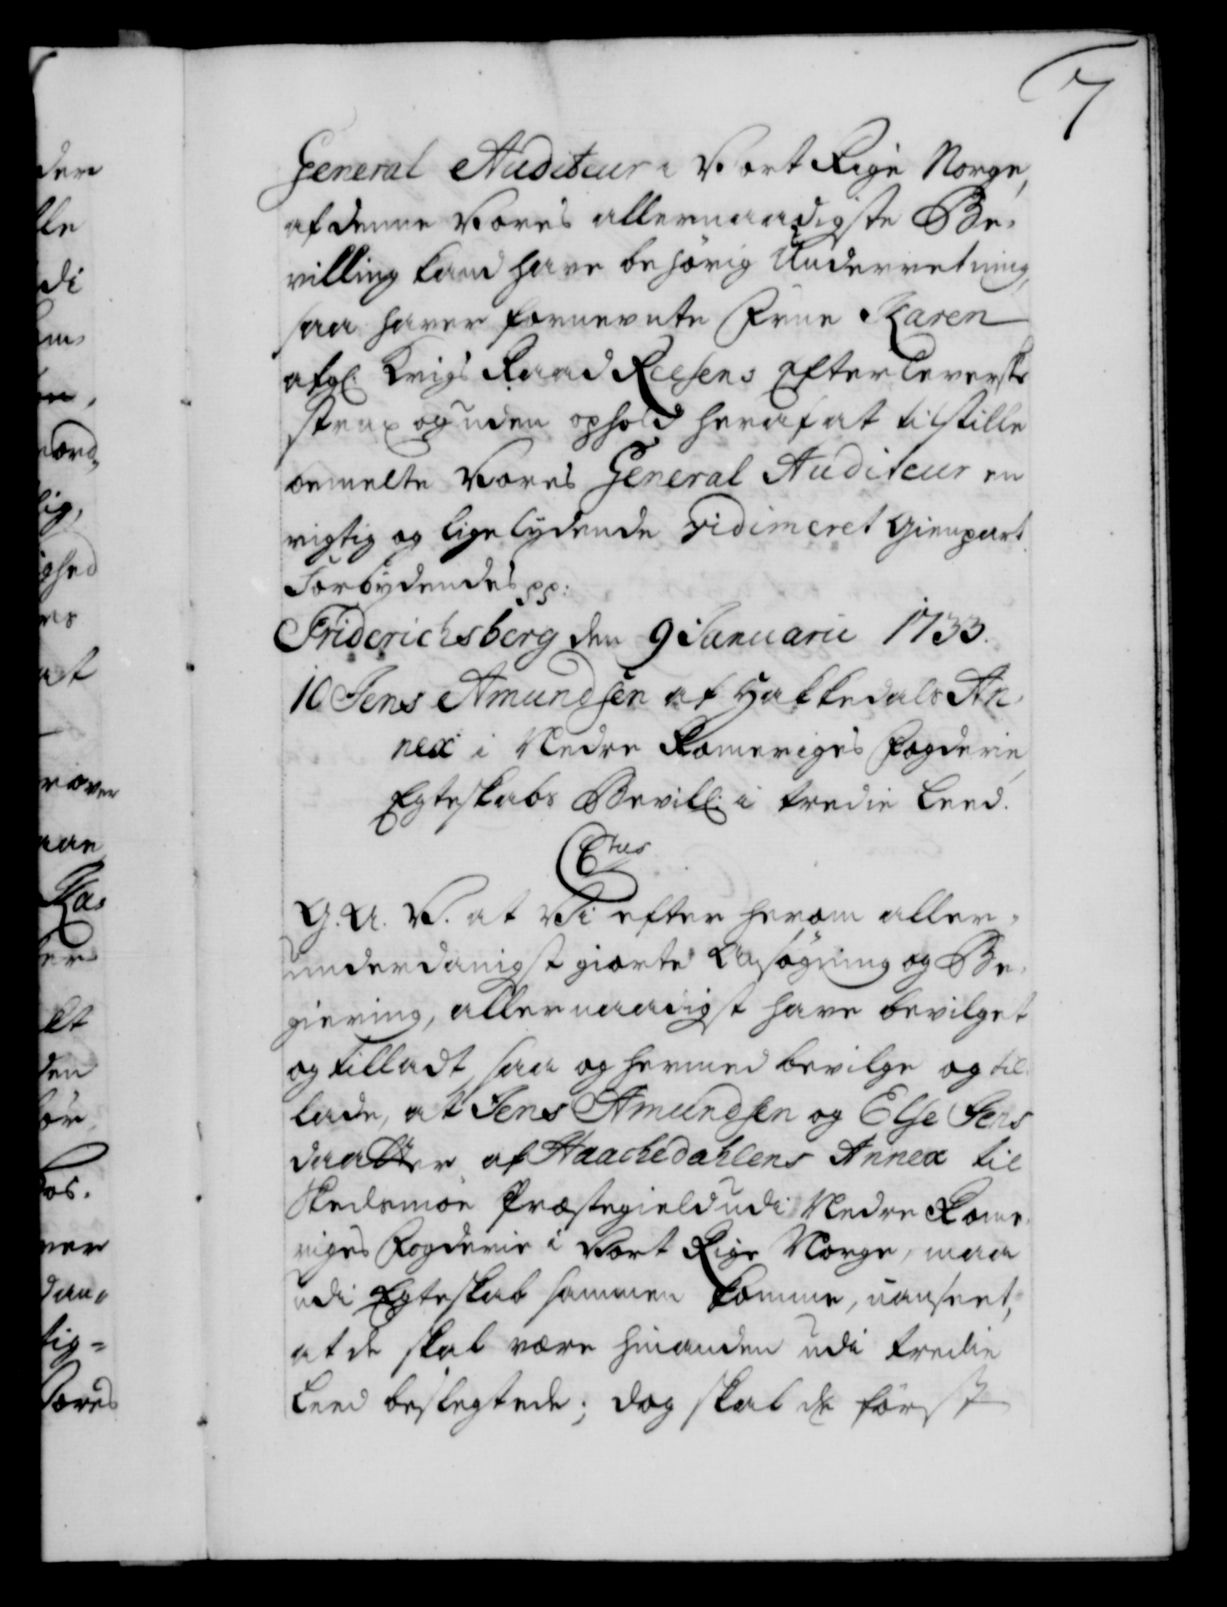 7
General Auditeur i Vort Rige Norge,
af denne Vores allernaadigste Be-
villing kand have behörig Underretning,
saa haver fornevnte Frue Karen
afg: Krigs Raad Reesens Efterleverske
strax og uden ophold heraf at tilstille
ommelte Vores General Auditeur en
rigtig og ligelydende vidimeret Gienpart.
Forbydendes pp:
Friderichsberg den 9 Januarii 1733.
10 Jens Amundsen af Hakkedals An-
nex i Nedre Romeriges Fogderie,
Egteskabs Bevill: i tredie Leed.
C6tus
G. A. V. at Vi efter herom aller-
underdanigst giorte Ansögning og Be-
giering, allernaadigst have bevilget
og tilladt, saa og hermed bevilge og til-
lade, at Jens Amundsen og Else Jens
daatter af Haachedahlens Annex til
Skedsmoe Præstegield udi Nedre Rome-
riges Fogderie i Vort Rige Norge, maa
udi Egteskab sammen komme, uanseet,
at de skal være hinanden udi tredie
Leed beslegtede; dog skal de först